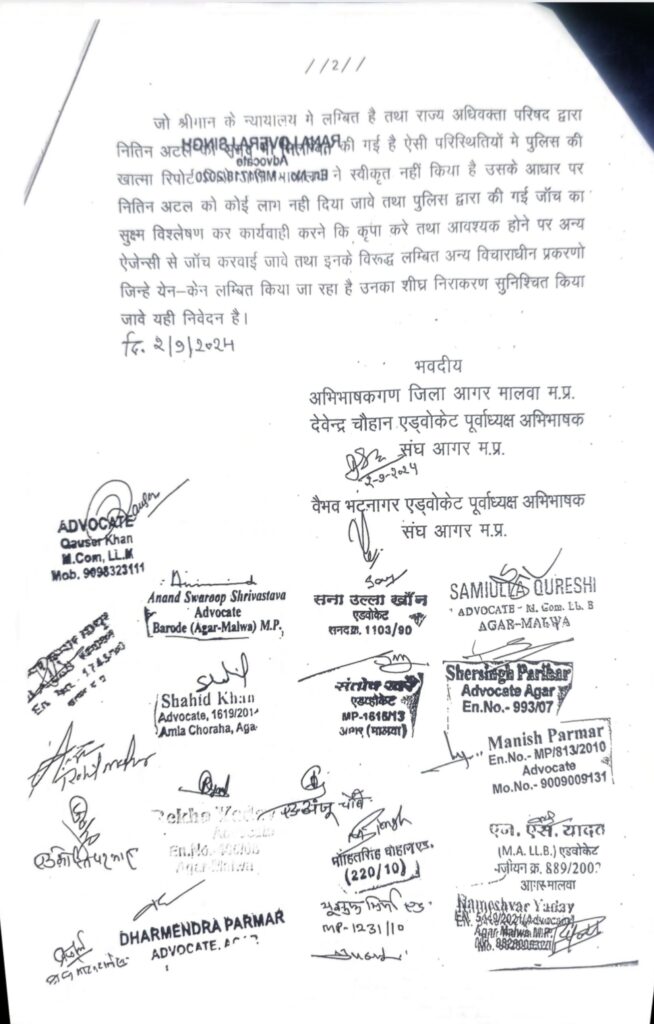 //2//
जो श्रीमान के न्यायालय मे लम्बित है तथा राज्य अधिवक्ता परिषद द्वारा
नितिन अटल की गई है ऐसी परिस्थितियों मे पुलिस की
खात्मा रिपोर्ट ने स्वीकृत नहीं किया है उसके आधार पर
नितिन अटल को कोई लाभ नही दिया जावे तथा पुलिस द्वारा की गई जॉच का
सुक्ष्म विश्लेषण कर कार्यवाही करने कि कृपा करे तथा आवश्यक होने पर अन्य
ऐजेन्सी से जॉच करवाई जावे तथा इनके विरूद्ध लम्बित अन्य विचाराधीन प्रकरणो
जिन्हे येन–केन लम्बित किया जा रहा है उनका शीघ्र निराकरण सुनिश्चित किया
जावे यही निवेदन है।
दि. २/९/२०२४
भवदीय
अभिभाषकगण जिला आगर मालवा म.प्र.
देवेन्द्र चौहान एड्वोकेट पूर्वाध्यक्ष अभिभाषक
संघ आगर म.प्र.
२-९-२०२४
वैभव भटनागर एड्वोकेट पूर्वाध्यक्ष अभिभाषक
संघ आगर म.प्र.
ADVOCATE
Qauser Khan
M.Com, LL.M
Mob. 9098323111
Anand Swaroop Shrivastava
Advocate
Barode (Agar-Malwa) M.P.
सना उल्ला खाँन
एडवोकेट
सनदक्र. 1103/90
SAMIULLA QURESHI
ADVOCATE - M. Com. LL. B
AGAR-MALWA
Shahid Khan
Advocate, 1619/201
Amla Choraha, Aga
संतोष खरे
एडव्होकेट
MP-1616/13
आगर (मालवा)
Shersingh Parihar
Advocate Agar
En.No.- 993/07
Manish Parmar
En.No.- MP/813/2010
Advocate
Mo.No.- 9009009131
Rekha Yadav
En.No.
Agar Malwa
मोहितसिंह चौहान एड.
(220/10)
एन. एस. यादव
(M.A. LL.B.) एडवोकेट
889/200
आगर मालवा
DHARMENDRA PARMAR
ADVOCATE, AGAR
MP-1231/10
Rameshwar Yadav
EN. 5449/2021/Advocate
Agar Malwa M.P.